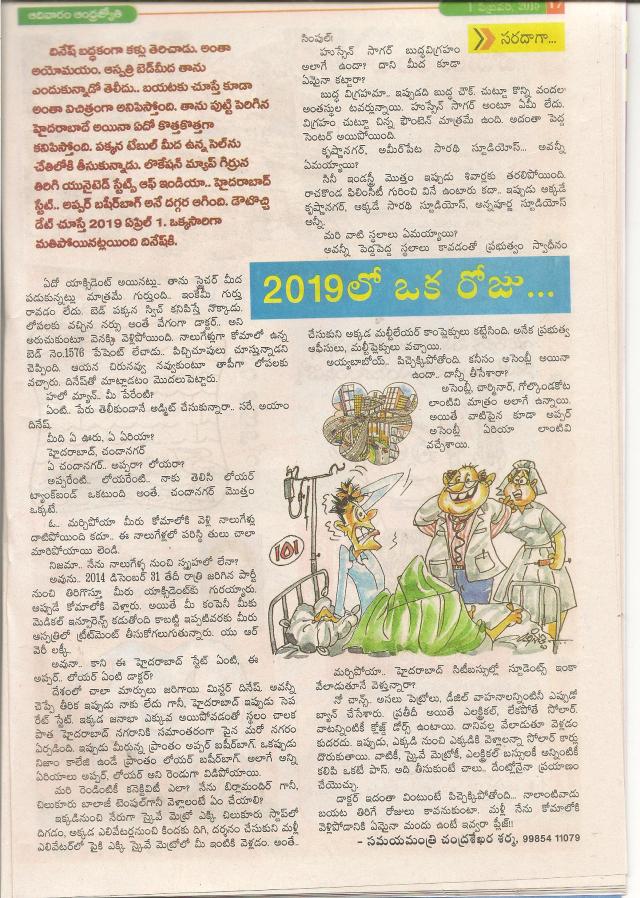 ఆదివారం ఆంధ్రజ్యోతి
1 ఫిబ్రవరి, 2015 17
దినేష్ బద్ధకంగా కళ్లు తెరిచాడు. అంతా
అయోమయం. ఆస్పత్రి బెడ్‌మీద తాను
ఎందుకున్నాడో తెలీదు.. బయటకు చూస్తే కూడా
అంతా విచిత్రంగా అనిపిస్తోంది. తాను పుట్టి పెరిగిన
హైదరాబాదే అయినా ఏదో కొత్తకొత్తగా
కనిపిస్తోంది. పక్కన టేబుల్ మీద ఉన్న సెల్‌ను
చేతిలోకి తీసుకున్నాడు. లొకేషన్ మ్యాప్ గిర్రున
తిరిగి యునైటెడ్ స్టేట్స్ ఆఫ్ ఇండియా.. హైదరాబాద్
స్టేట్.. అప్పర్ బషీర్‌బాగ్ అనే దగ్గర ఆగింది. డౌటొచ్చి
డేట్ చూస్తే 2019 ఏప్రిల్ 1. ఒక్కసారిగా
మతిపోయినట్లయింది దినేష్‌కి.
ఏదో యాక్సిడెంట్ అయినట్లు.. తాను స్ట్రెచర్ మీద
పడుకున్నట్లు మాత్రమే గుర్తుంది.. ఇంకేమీ గుర్తు
రావడం లేదు. బెడ్ పక్కన స్విచ్ కనిపిస్తే నొక్కాడు.
లోపలకు వచ్చిన నర్సు అంతే వేగంగా డాక్టర్.. అని
అరుచుకుంటూ వెనక్కి వెళ్లిపోయింది. నాలుగేళ్లుగా కోమాలో ఉన్న
బెడ్ నెం.1576 పేషెంట్ లేచాడు.. పిచ్చిచూపులు చూస్తున్నాడని
చెప్పింది. ఆయన చిరునవ్వు నవ్వుకుంటూ తాపీగా లోపలకు
వచ్చారు. దినేష్‌తో మాట్లాడటం మొదలుపెట్టారు.
హలో మ్యాన్.. మీ పేరేంటి?
ఏంటి.. పేరు తెలీకుండానే అడ్మిట్ చేసుకున్నారా.. సరే, అయాం
దినేష్.
మీది ఏ ఊరు, ఏ ఏరియా?
హైదరాబాద్, చందానగర్
ఏ చందానగర్.. అప్పరా? లోయరా?
అప్పరేంటి.. లోయరేంటి.. నాకు తెలిసి లోయర్
ట్యాంక్‌బండ్ ఒకటుంది అంతే. చందానగర్ మొత్తం
ఒక్కటే.
ఓ.. మర్చిపోయా మీరు కోమాలోకి వెళ్లి నాలుగేళ్లు
దాటిపోయింది కదూ.. ఈ నాలుగేళ్లలో పరిస్థి తులు చాలా
మారిపోయాయి లెండి.
నిజమా.. నేను నాలుగేళ్ళ నుంచి స్పృహలో లేనా?
అవును.. 2014 డిసెంబర్ 31 తేదీ రాత్రి జరిగిన పార్టీ
నుంచి తిరిగొస్తూ మీరు యాక్సిడెంట్‌కు గురయ్యారు.
అప్పుడే కోమాలోకి వెళ్లారు. అయితే మీ కంపెనీ మీకు
మెడికల్ ఇన్సూరెన్స్ కడుతోంది కాబట్టి ఇప్పటివరకు మీరు
ఆస్పత్రిలో ట్రీట్‌మెంట్ తీసుకోగలుగుతున్నారు. యు ఆర్
వెరీ లక్కీ.
అవునా.. కాని ఈ హైదరాబాద్ స్టేట్ ఏంటి, ఈ
అప్పర్.. లోయర్ ఏంటి డాక్టర్?
దేశంలో చాలా మార్పులు జరిగాయి మిస్టర్ దినేష్. అవన్నీ
చెప్పే తీరిక ఇప్పుడు నాకు లేదు గానీ, హైదరాబాద్ ఇప్పుడు సెప
రేట్ స్టేట్. ఇక్కడ జనాబా ఎక్కువ అయిపోవడంతో స్థలం చాలక
పాత హైదరాబాద్ నగరానికి సమాంతరంగా పైన మరో నగరం
ఏర్పడింది. ఇప్పుడు మీరున్న ప్రాంతం అప్పర్ బషీర్‌బాగ్. ఒకప్పుడు
నిజాం కాలేజి ఉండే ప్రాంతం లోయర్ బషీర్‌బాగ్. అలాగే అన్ని
ఏరియాలు అప్పర్, లోయర్ అని రెండుగా విడిపోయాయి.
మరి రెండింటికీ కనెక్టివిటీ ఎలా? నేను బిర్లామందిర్ గానీ,
చిలుకూరు బాలాజీ టెంపుల్‌గానీ వెళ్లాలంటే ఏం చేయాలి?
ఇక్కడినుంచి నేరుగా స్కైవే మెట్రో ఎక్కి చిలుకూరు స్టాప్‌లో
దిగడం, అక్కడ ఎలివేటర్లనుంచి కిందకు దిగి, దర్శనం చేసుకుని మళ్లీ
ఎలివేటర్‌లో పైకి ఎక్కి స్కైవే మెట్రోలో మీ ఇంటికి వెళ్లడం. అంతే..
సింపుల్!
హుస్సేన్ సాగర్ బుద్ధవిగ్రహం
అలాగే ఉందా? దాని మీద కూడా
ఏమైనా కట్టారా?
బుద్ధ విగ్రహమా.. ఇప్పుడది బుద్ధ చౌక్. చుట్టూ కొన్ని వందల
అంతస్థుల టవర్లున్నాయి. హుస్సేన్ సాగర్ అంటూ ఏమీ లేదు.
విగ్రహం చుట్టూ చిన్న ఫౌంటెన్ మాత్రమే ఉంది. అదంతా పెద్ద
సెంటర్ అయిపోయింది.
కృష్ణానగర్, అమీర్‌పేట సారథి స్టూడియోస్... అవన్నీ
ఏమయ్యాయి?
సినీ ఇండస్ట్రీ మొత్తం ఇప్పుడు శివార్లకు తరలిపోయింది.
రాచకొండ ఫిలింసిటీ గురించి వినే ఉంటారు కదా.. ఇప్పుడు అక్కడే
కృష్ణానగర్, అక్కడే సారథి స్టూడియోస్, అన్నపూర్ణ స్టూడియోస్
అన్నీ.
మరి వాటి స్థలాలు ఏమయ్యాయి?
అవన్నీ పెద్దపెద్ద స్థలాలు కావడంతో ప్రభుత్వం స్వాధీనం
సరదాగా...
2019లో ఒక రోజు...
చేసుకుని అక్కడ మల్టీలేయర్ కాంప్లెక్సులు కట్టేసింది. అనేక ప్రభుత్వ
ఆఫీసులు, మల్టీప్లెక్సులు వచ్చాయి.
అయ్యబాబోయ్.. పిచ్చెక్కిపోతోంది. కనీసం అసెంబ్లీ అయినా
ఉందా.. దాన్నీ తీసేశారా?
అసెంబ్లీ, చార్మినార్, గోల్కొండకోట
లాంటివి మాత్రం అలాగే ఉన్నాయి.
అయితే వాటిపైన కూడా అప్పర్
అసెంబ్లీ ఏరియా లాంటివి
వచ్చేశాయి.
101
మర్చిపోయా.. హైదరాబాద్ సిటీబస్సుల్లో స్టూడెంట్స్ ఇంకా
వేలాడుతూనే వెళ్తున్నారా?
నో చాన్స్. అసలు పెట్రోలు, డీజిల్ వాహనాలన్నింటినీ ఎప్పుడో
బ్యాన్ చేసేశారు. ప్రతీదీ అయితే ఎలక్ట్రికల్, లేకపోతే సోలార్.
వాటన్నింటికీ క్లోజ్డ్ డోర్స్ ఉంటాయి. దానివల్ల వేలాడుతూ వెళ్లడం
కుదరదు. ఇప్పుడు, ఎక్కడి నుంచి ఎక్కడికి వెళ్లాలన్నా సోలార్ కార్లు
దొరుకుతాయి. వాటికీ, స్కైవే మెట్రోకీ, ఎలక్ట్రికల్ బస్సులకీ అన్నింటికీ
కలిపి ఒకటే పాస్. అది తీసుకుంటే చాలు.. దేంట్లోనైనా ప్రయాణం
చేయొచ్చు.
డాక్టర్ ఇదంతా వింటుంటే పిచ్చెక్కిపోతోంది... నాలాంటివాడు
బయట తిరిగే రోజులు కావనుకుంటా. మళ్లీ నేను కోమాలోకి
వెళ్లిపోడానికి ఏమైనా మందు ఉంటే ఇవ్వరా ప్లీజ్!!
- సమయమంత్రి చంద్రశేఖర శర్మ, 99854 11079